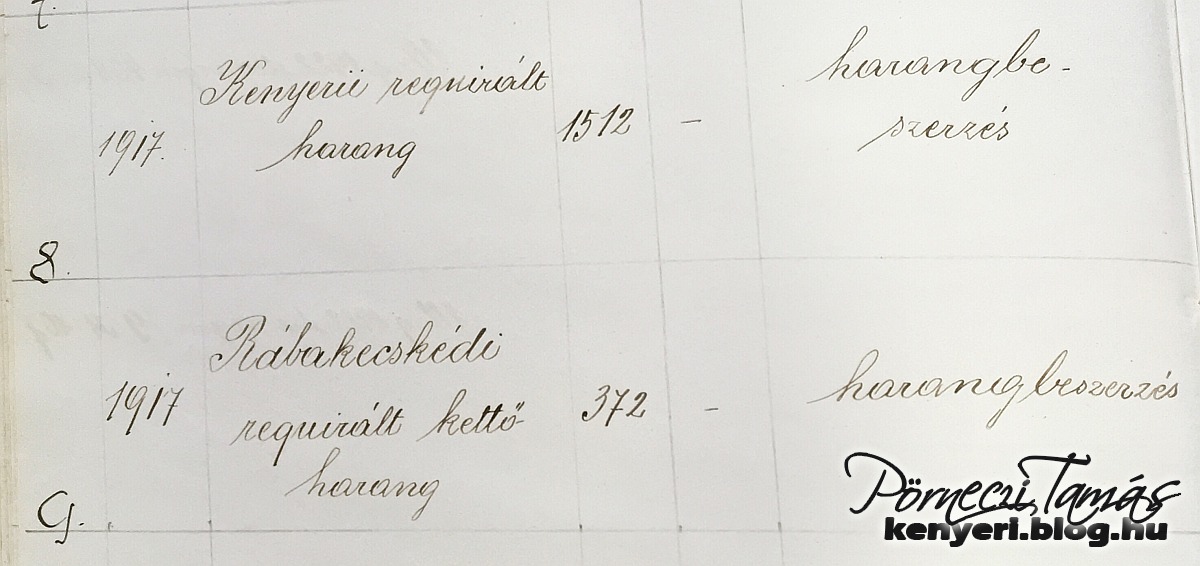 7.
1917.
Kenyerii requirált
harang
1512
–
harangbe-
szerzés
8.
1917
Rábakecskédi
requirált kettő
harang
372
–
harangbeszerzés
9.
Pörneczi Tamás
kenyeri.blog.hu